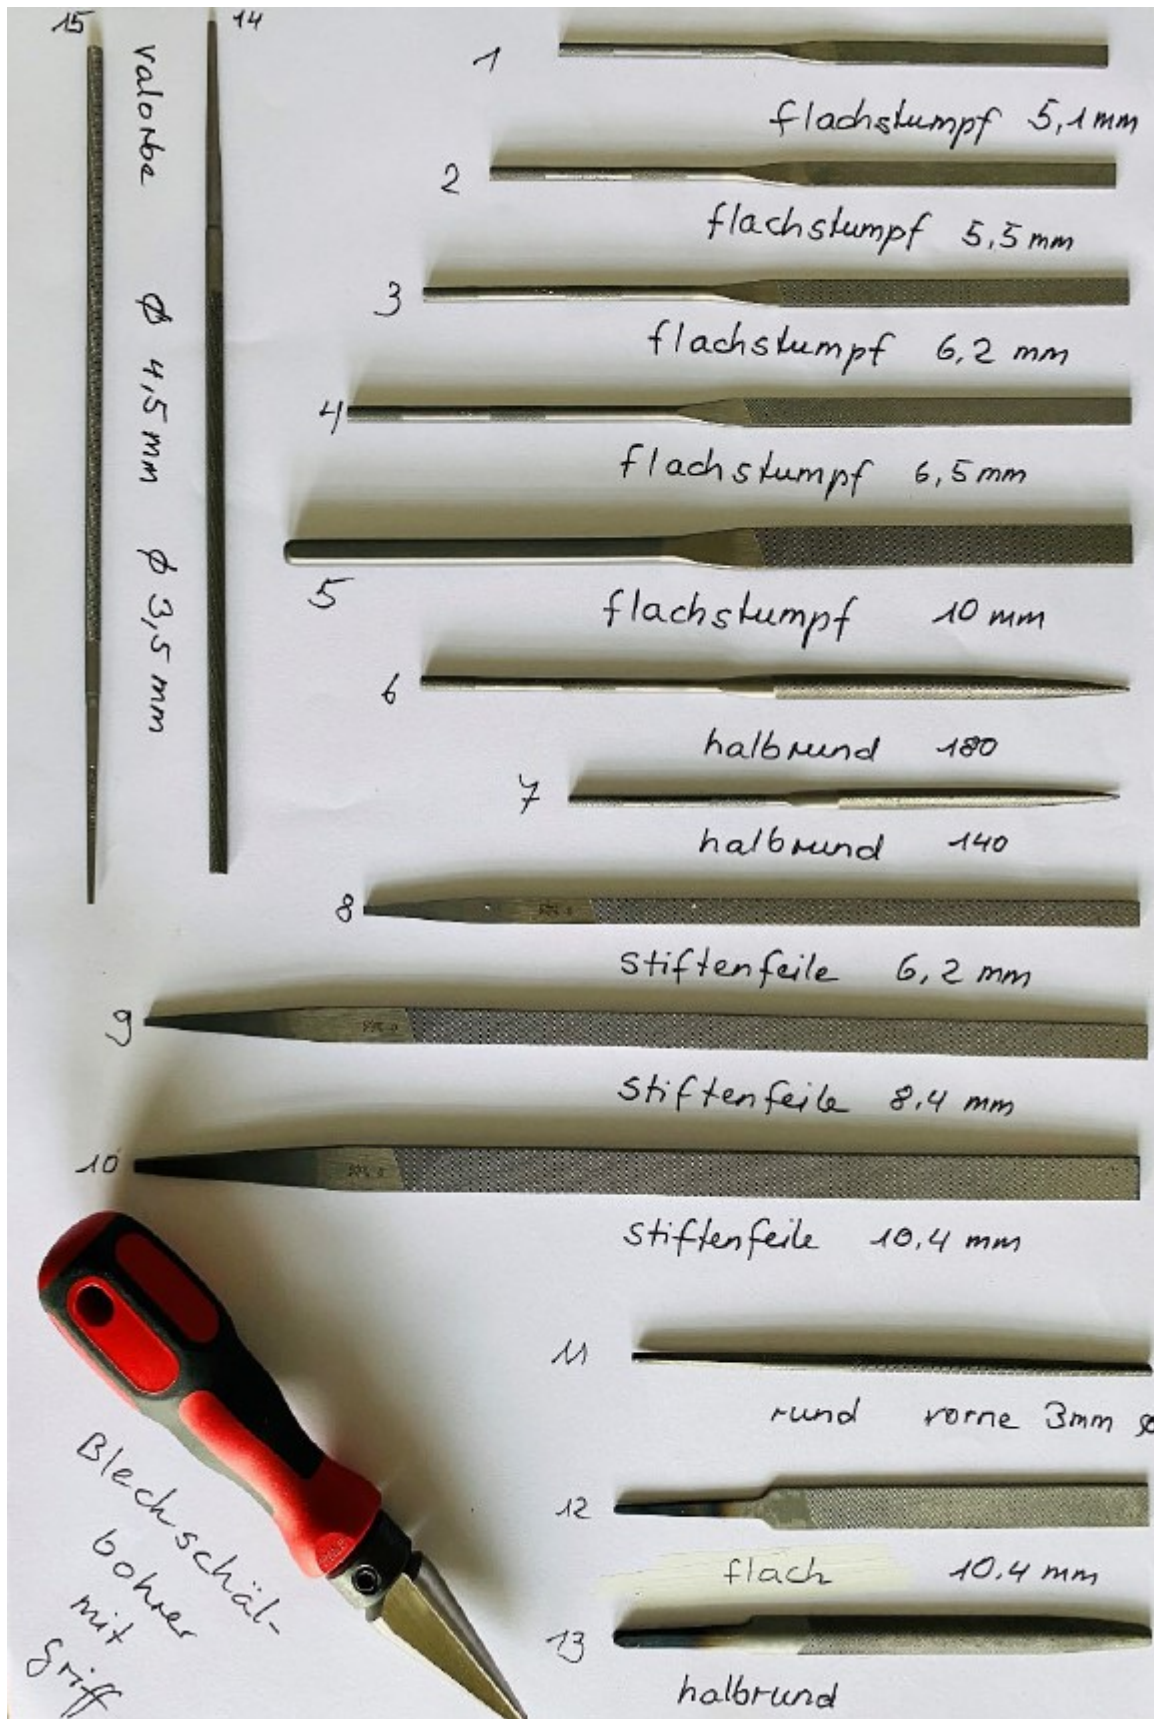 15
14
valorbe
ø 4,5 mm
ø 3,5 mm
1
flachstumpf 5,1mm
2
flachstumpf 5,5mm
3
flachstumpf 6,2 mm
4
flachstumpf 6,5mm
5
flachstumpf 10 mm
6
halbrund 180
7
halbrund 140
8
stiftenfeile 6,2 mm
9
stiftenfeile 8.4 mm
10
stiftenfeile 10.4 mm
11
rund vorne 3mm ø
12
flach 10.4 mm
13
halbrund
Blechschäl-
bohrer
mit
Griff